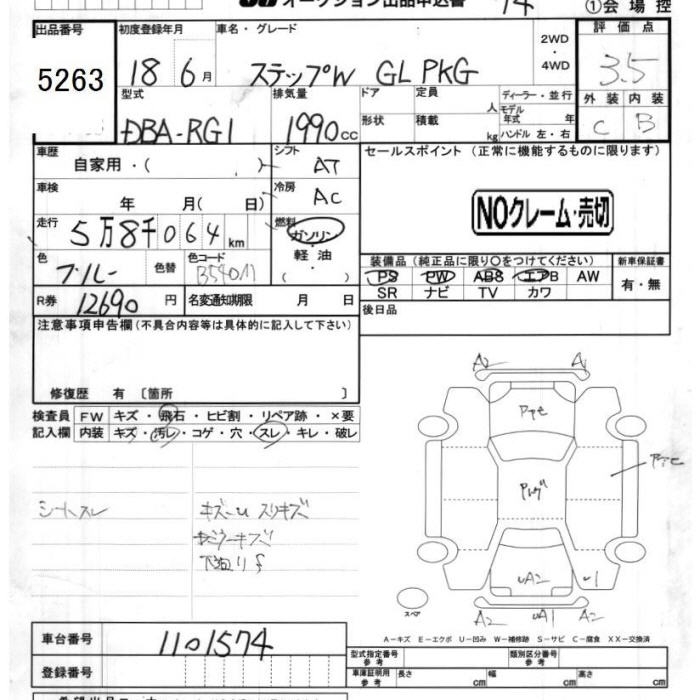 オークション出品申込書 74
①会場控
出品番号 初度登録年月 車名・グレード 2WD・4WD 評価点
5263 18 6月 ステップW GL PKG 3.5
型式 排気量 ドア形状 定員 人 積載 kg ディーラー・並行 モデル年式 年 ハンドル 左・右 外装 内装
DBA-RG1 1990cc C B
車歴 自家用・( ) シフト AT セールスポイント (正常に機能するものに限ります)
車検 年 月( 日) 冷房 AC
NOクレーム・売切
走行 5万8千064km 燃料 ガソリン・軽油・( )
色 ブルー 色替 色コード
装備品 (純正品に限り○をつけてください) 新車保証書
PS PW ABS エアB AW 有・無
SR ナビ TV カワ
R券 12690円 名変通知期限 月 日 後日品
注意事項申告欄(不具合内容等は具体的に記入して下さい)
修復歴 有 〔箇所 〕
検査員 FW キズ・飛石・ヒビ割・リペア跡・×要
記入欄 内装 キズ・汚レ・コゲ・穴・スレ・キレ・破レ
A2 A
シートスレ
スリキズ
UA2 U1
スペア
A2 UA1 A2
A－キズ E－エクボ U－凹み W－補修跡 S－サビ C－腐食 XX－交換済
車台番号 1101574
型式指定番号 参考 類別区分番号 参考
登録番号 車庫証明用 参考 長さ cm 幅 cm 高さ cm